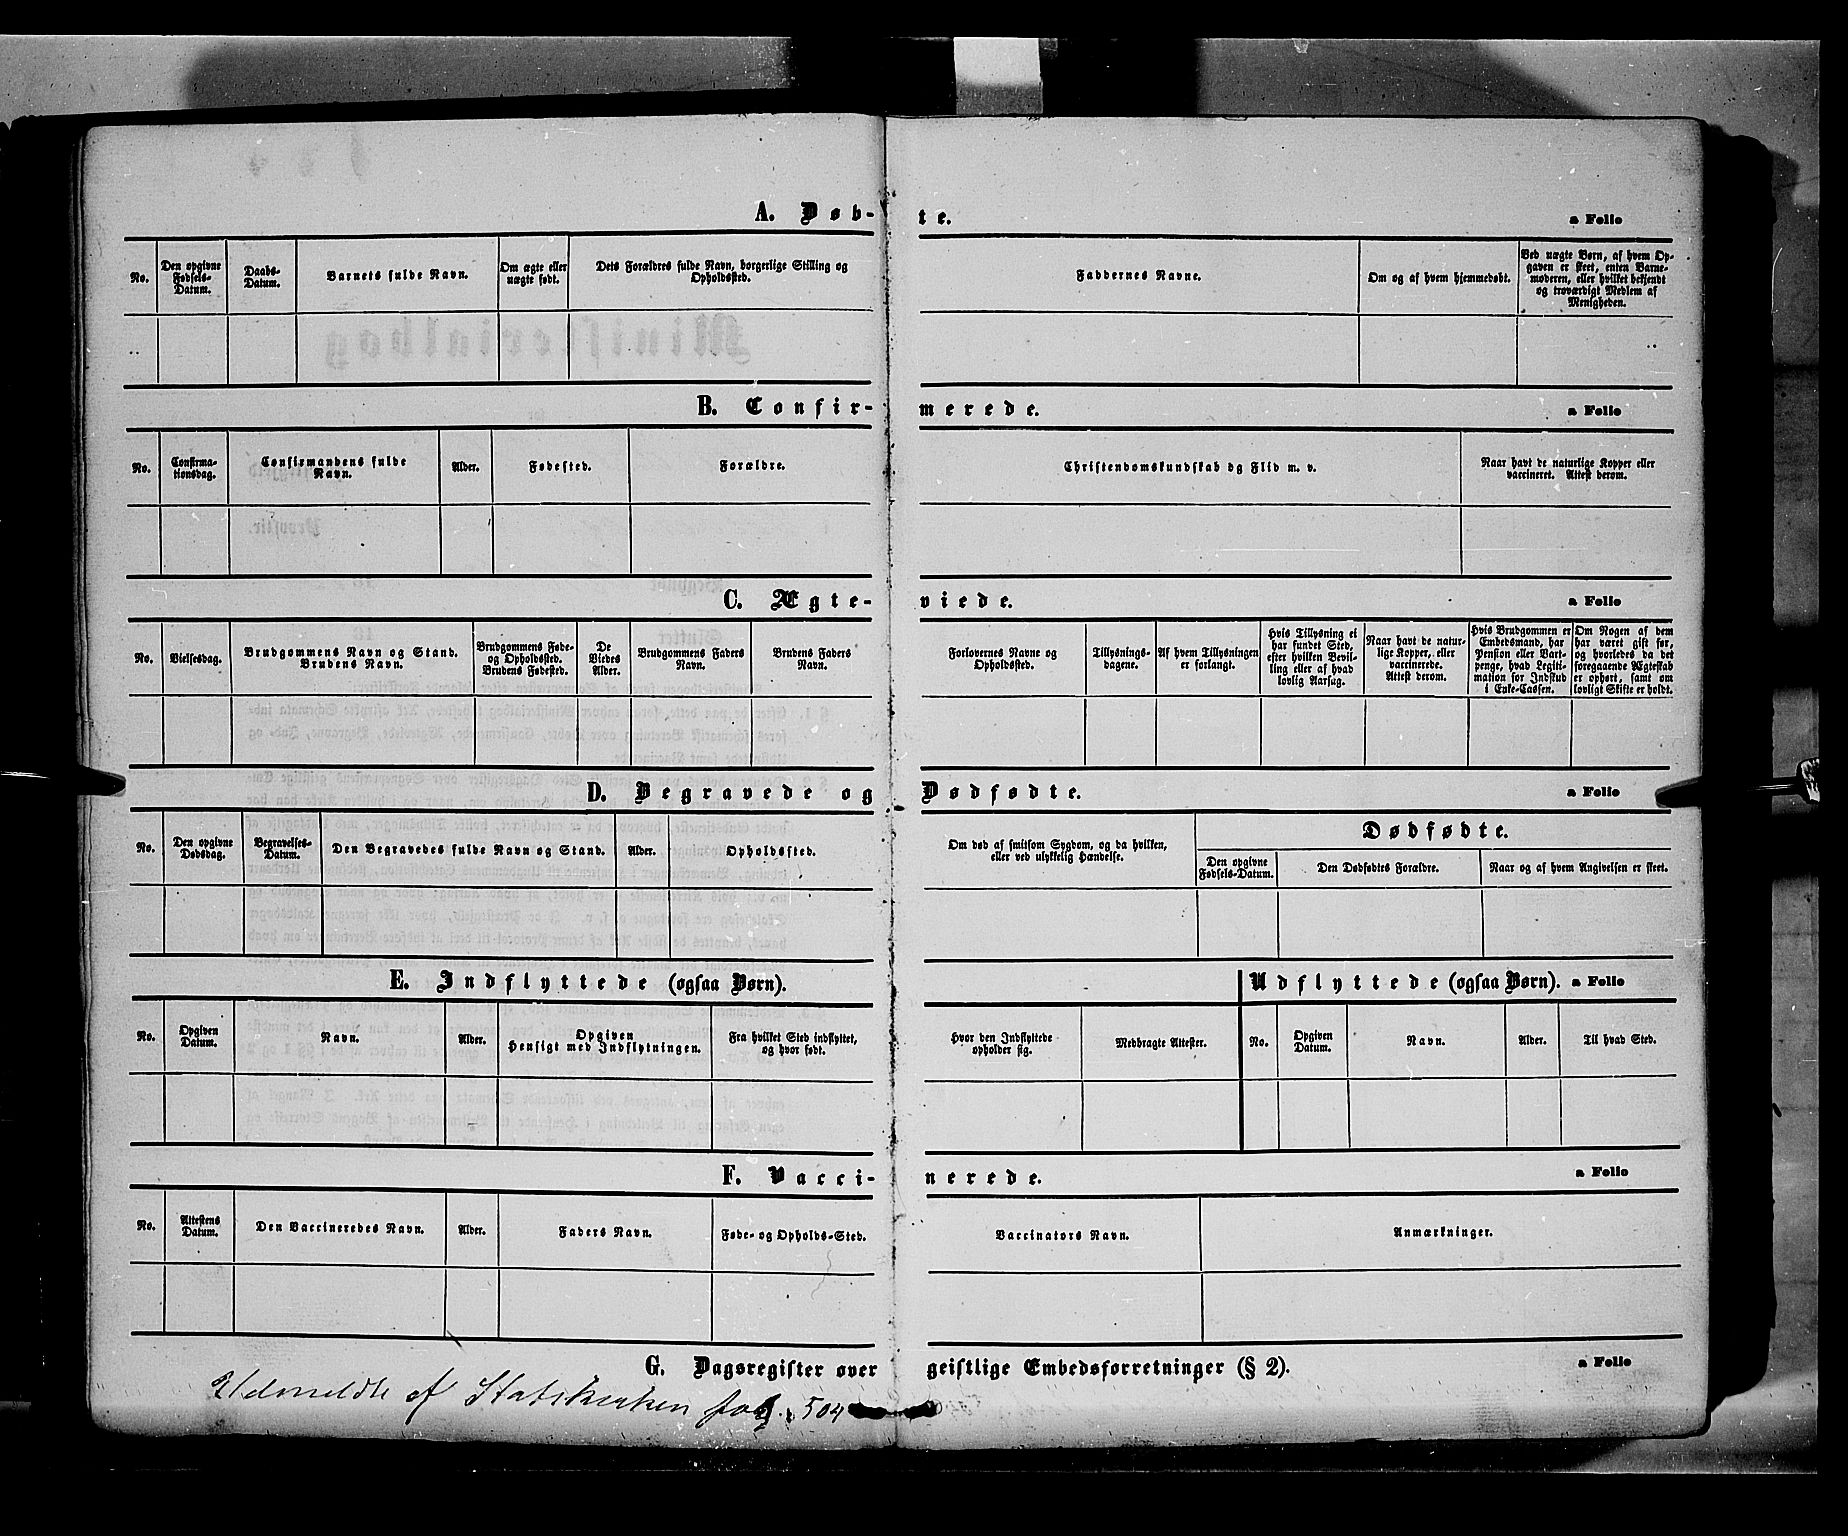 A. Døb-te. a Folio
No.
Den opgivne Fødsels-Datum.
Daabs-Datum.
Barnets fulde Navn.
Om ægte eller uægte født.
Dets Forældres fulde Navn, borgerlige Stilling og Opholdssted.
Faddernes Navne.
Om og af hvem hjemmedøbt.
Ved uægte Børn, af hvem Opgaven er skeet, enten Barnemoderen, eller hvilket bekjendt og troværdigt Medlem af Menigheden.
B. Confir-merede. a Folio
No.
Confirmationsdag.
Confirmandens fulde Navn.
Alder.
Fødested.
Forældre.
Christendomskundskab og Flid m. v.
Naar havt de naturlige Kopper eller vaccineret. Attest derom.
C. Ægte-viede. a Folio
No.
Vielsesdag.
Brudgommens Navn og Stand. Brudens Navn.
Brudgommens Føde- og Opholdssted. Brudens Fødested.
De Viedes Alder.
Brudgommens Faders Navn.
Brudens Faders Navn.
Forlovernes Navne og Opholdssted.
Tillysnings-dagene.
Af hvem Tillysningen er forlangt.
Hvis Tillysning ei har fundet Sted, efter hvilken Bevilling eller af hvad lovlig Aarsag.
Naar havt de naturlige Kopper, eller vaccinerede. Attest derom.
Hvis Brudgommen er Embedsmand, har Pension eller Vartpenge, hvad Legitimation for Indskud i Enke-Cassen.
Om Nogen af dem har været gift før, og hvorledes da det foregaaende Ægteskab er ophørt, samt om lovligt Skifte er holdt.
D. Begravede og Dødfødte. a Folio
No.
Den opgivne Dødsdag.
Begravelses-Datum.
Den Begravedes fulde Navn og Stand.
Alder.
Opholdssted.
Om død af smitsom Sygdom, og da hvilken, eller ved ulykkelig Hændelse.
Dødfødte.
Den opgivne Fødsels-Datum.
Den Dødfødtes Forældre.
Naar og af hvem Angivelsen er skeet.
E. Indflyttede (ogsaa Børn).
Udflyttede (ogsaa Børn). a Folio
No.
Opgiven Datum.
Navn.
Alder.
Opgiven Hensigt med Indflytningen.
Fra hvilket Sted indflyttet, og hvor født.
Hvor den Indflyttede opholder sig.
Medbragte Attester.
No.
Opgiven Datum.
Navn.
Alder.
Til hvad Sted.
F. Vacci-nerede. a Folio
No.
Attestens Datum.
Den Vaccineredes Navn.
Alder.
Faders Navn.
Føde- og Opholds-Sted.
Vaccinators Navn.
Anmærkninger.
G. Dagsregister over geistlige Embedsforretninger (§ 2). a Folio
Udmeldte af Statskirken pag. 504